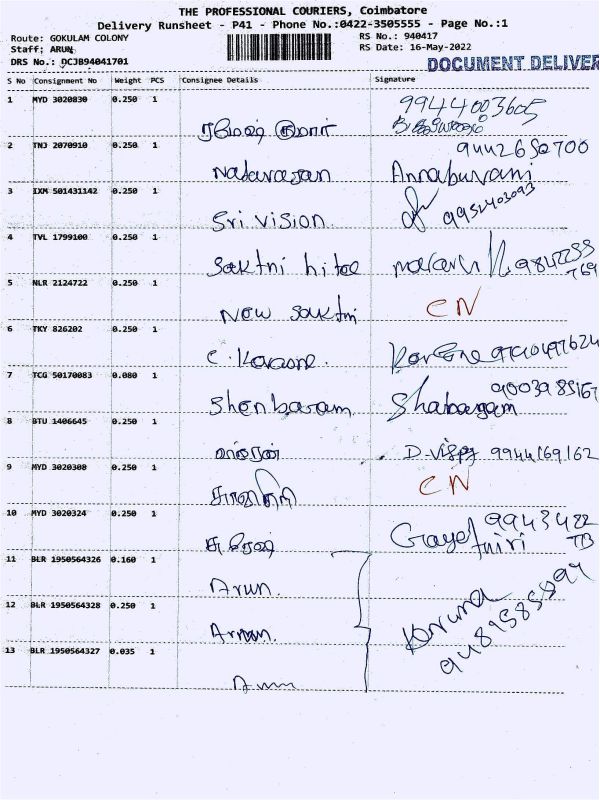 THE PROFESSIONAL COURIERS, Coimbatore
Delivery Runsheet - P41 - Phone No.:0422-3505555 - Page No.:1
Route: GOKULAM COLONY
RS No.: 940417
Staff: ARUN
RS Date: 16-May-2022
DRS No.: DCJB94041701
DOCUMENT DELIVER
S No Consignment No Weight PCS Consignee Details Signature
1 MYD 3020830 0.250 1
9944003605
ரமேஷ் குமார்
2 TNJ 2070910 0.250 1
9442650700
Natarasan Annaburani
3 IXM 501431142 0.250 1
Sri vision 9952403093
4 TVL 1799100 0.250 1
Saktni hitec
5 NLR 2124722 0.250 1
New Saktni CN
6 TKY 826202 0.250 1
7 TCG 50170083 0.080 1
Shenbaram
8 BTU 1406645 0.250 1
9944169162
9 MYD 3020308 0.250 1
CN
10 MYD 3020324 0.250 1
9943422
சுரேஷ் Gayet
11 BLR 1950564326 0.160 1
Arun.
12 BLR 1950564328 0.250 1
Arun.
Karuna
13 BLR 1950564327 0.035 1
Arun